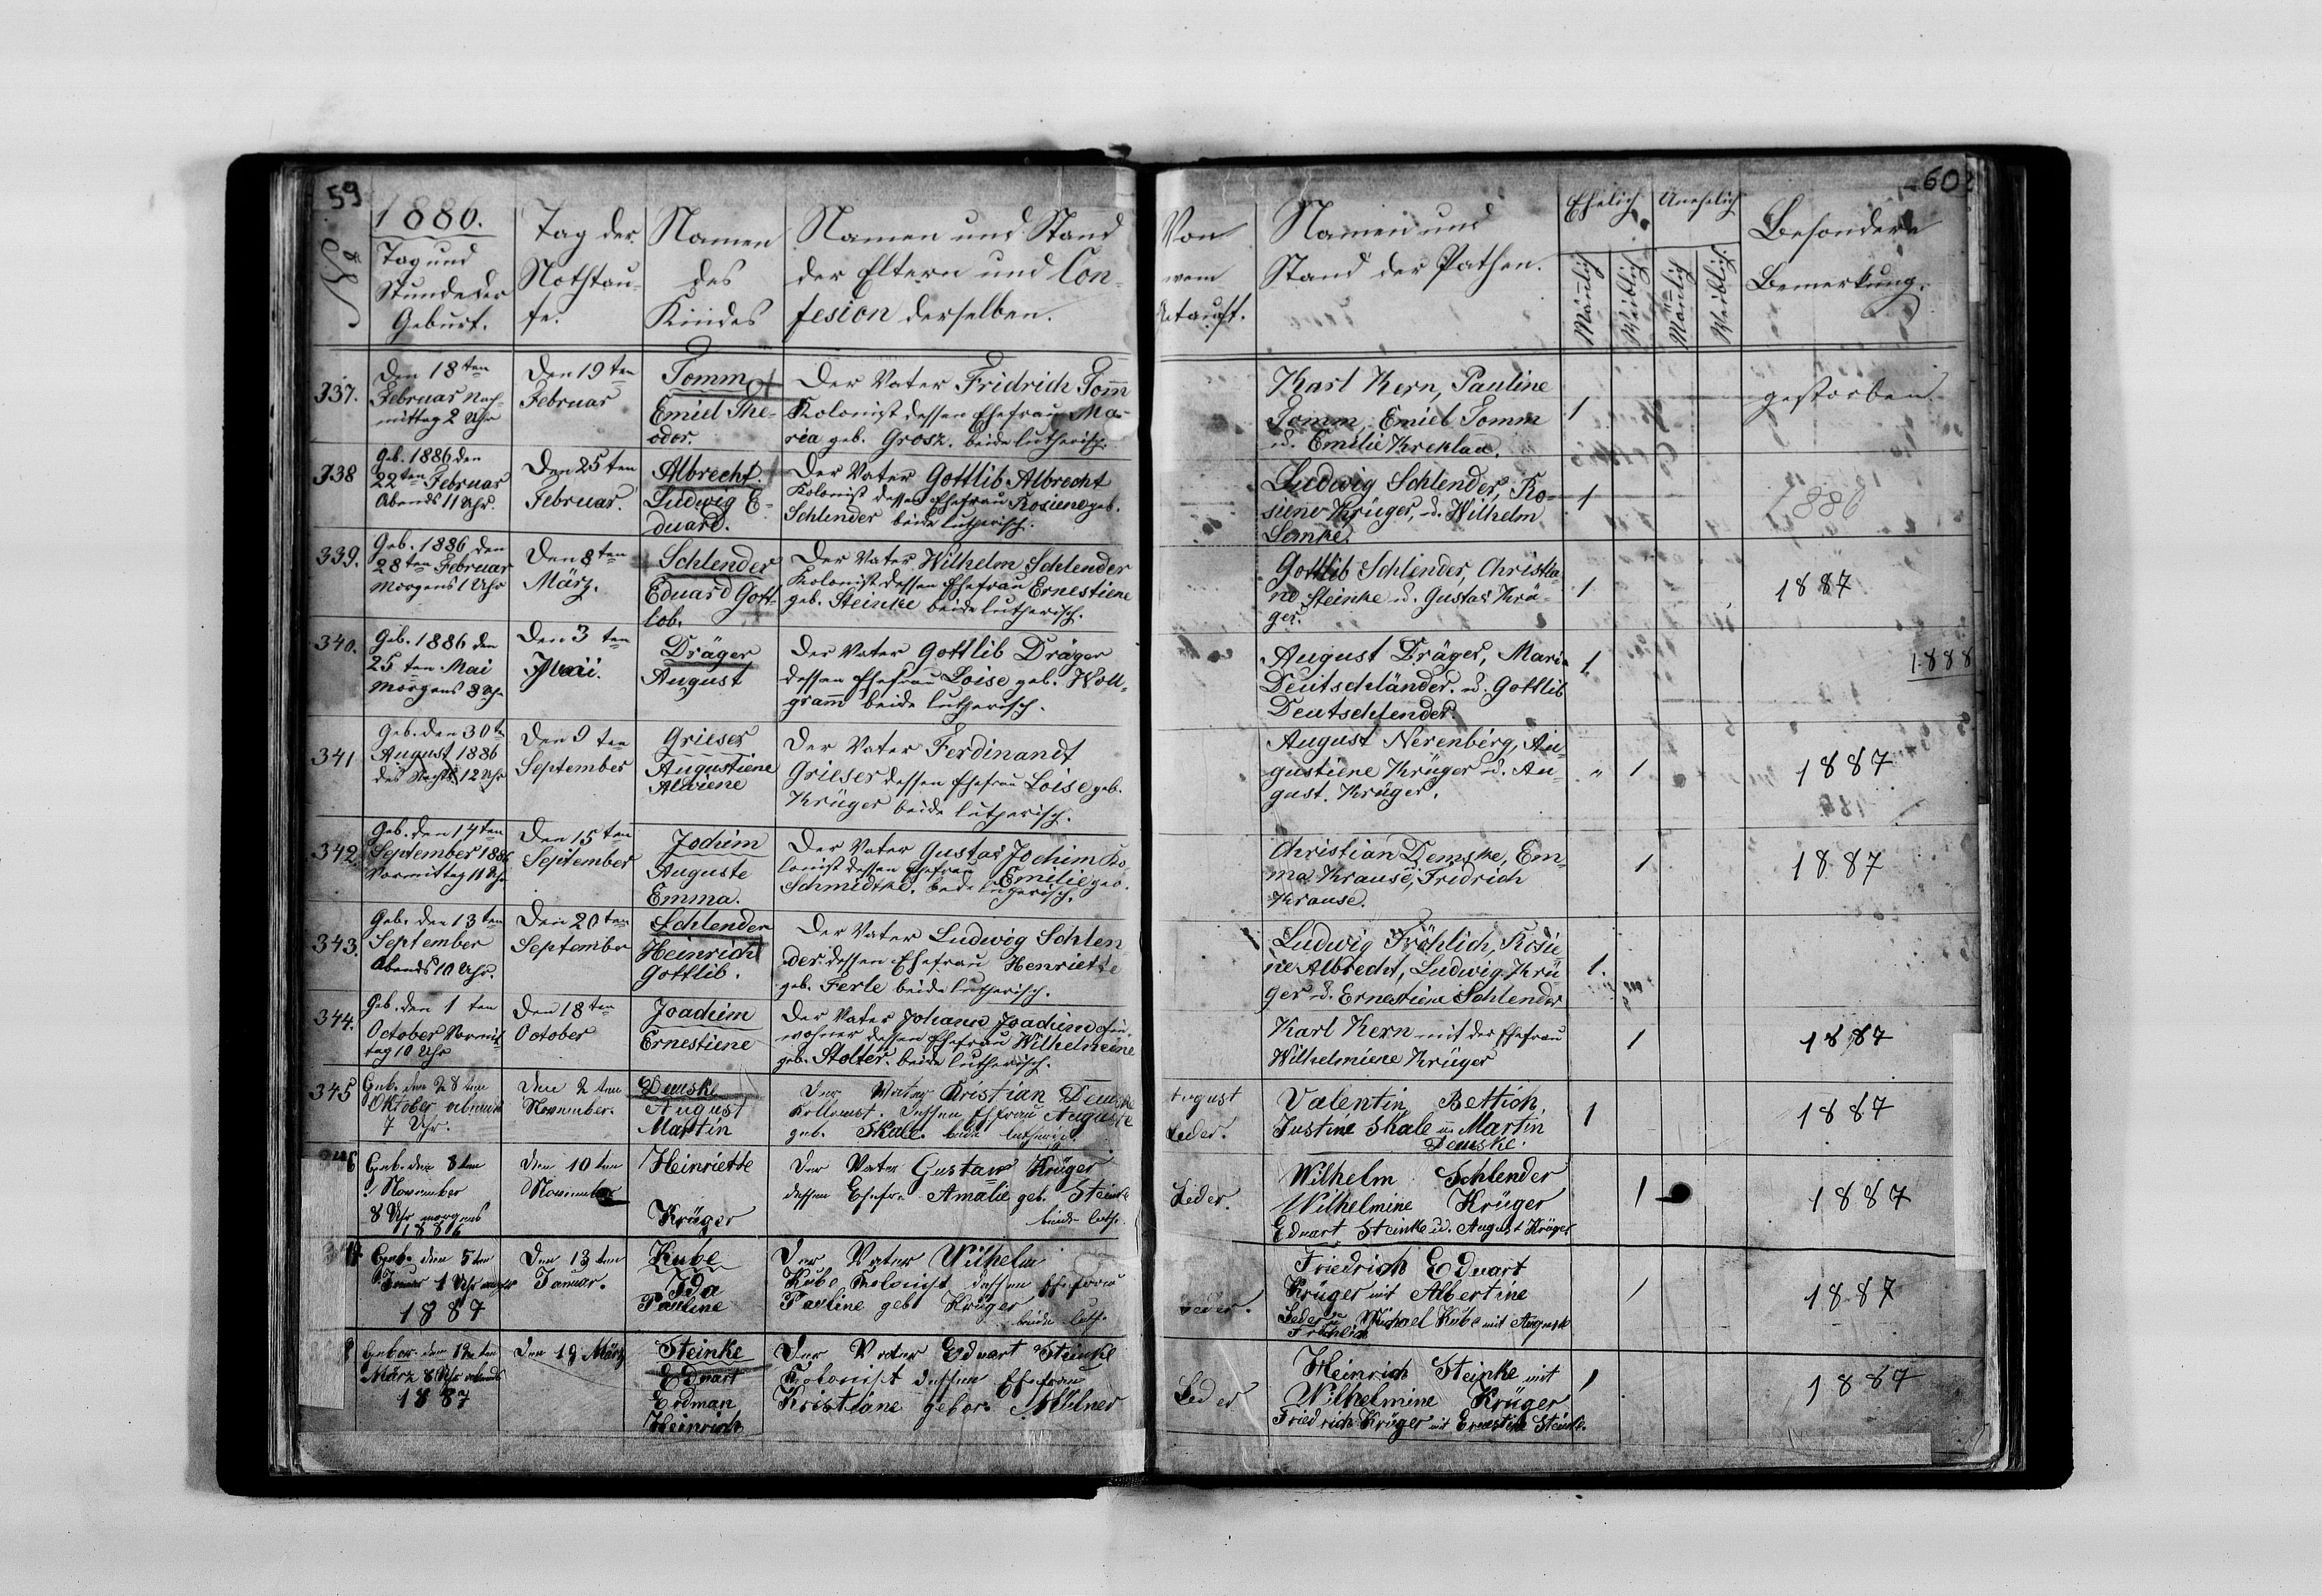 59
1886.
Tag und
Stunde der
Geburt.
Tag der
Nothtau-
fe.
Namen
des
Kindes
Namen und Stand
der Eltern und Con-
fesion derselben.
337.
Den 18ten
Februar Nach-
mittag 2 Uhr
Den 19ten
Februar
Tomm
Emiel The-
odor.
Der Vater Fridrich Tomm
Kolonist dessen Ehefrau Ma-
ria geb. Grosz. beide lutherisch.
338
Geb. 1886 den
22ten Februar
Abends 11 Uhr.
Den 25ten
Februar.
Albrecht.
Ludwig E-
duard.
Der Vater Gottlib Albrecht
Kolonist dessen Ehefrau Rosiene geb.
Schlender beide lutherisch.
339.
Geb. 1886 den
28ten Februar
Morgens 1 Uhr
Den 8ten
März.
Schlender
Eduard Gott-
lob.
Der Vater Wilhelm Schlender
Kolonist dessen Ehefrau Ernestiene
geb. Steinke beide lutherisch.
340.
Geb. 1886 den
25ten Mai
Morgens 8 Uhr
Den 3ten
Dräger
August
Der Vater Gottlib Dräger
dessen Ehefrau Loise geb. Woll-
gramm beide lutherisch.
341
Geb. den 30t
August 1886
des Nachts 12 Uhr
Den 9ten
September
Grieser
Augustiene
Alwiene
Der Vater Ferdinandt
Grieser dessen Ehefrau Loise geb.
Krüger beide lutherisch.
342.
Geb. den 14ten
September 1886
Vormittag 11 Uhr
Den 15ten
September
Jochim
Auguste
Emma.
Der Vater Gustav Jochim Ko-
lonist dessen Ehefrau Emilie geb.
Schmidtke. beide lutherisch.
343.
Geb. den 13ten
September
Abends 10 Uhr.
Den 20ten
September
Schlender
Heinrich
Gottlib.
Der Vater Ludwig Schlen
der. dessen Ehefrau Henriette
geb. Ferle beide lutherisch.
344.
Geb. den 1ten
October Vormit-
tag 10 Uhr
Den 18ten
October
Joachim
Ernestiene
Der Vater Johann Joachim Ein-
wohner dessen Ehefrau Wilhelmeine
geb. Stolter. beide lutherisch.
345
Geb. den 28ten
Oktober abends
7 Uhr.
Den 2ten
November.
Demske
August
Martin
Der Vater Kristian Demske
Kollonist. Dessen Ehfrau Auguste
geb. Skale. beide lutherisch.
Geb. den 8ten
November
8 Uhr morgens
1886
Den 10ten
November
Heinriette
Krüger
Der Vater Gustaw Krüger
dessen Ehefr. Amalie geb. Steinke
beide luth.
Geb. den 5ten
Januar 1 Uhr
1887
Den 13ten
Januar.
Kube
Ida
Pauline
Der Vater Wilhelm
Kube, Kolonist dessen Ehefrau
Pauline geb. Krüger
beide luth.
Gebor. den 12ten
März 8 Uhr abends
1887
Den 19 März
Steinke
Eduart
Erdman
Heinrich
Der Vater Eduart Steinke
Kolonist dessen Ehefrau
Kristiane gebor. Millner
60
Von
wem
Getauft.
Namen und
Stand der Pathen.
Ehelich
Unehelich
Mänlich
Weiblich
Mänlich
Weiblich
Besondere
Bemerkung.
Karl Kern, Pauline
Tomm, Emiel Tomm
u. Emilie Kreklau.
1
gestorben
Ludwig Schlender, Ro-
siene Krüger, u. Wilhelm
Lemke.
1
1886
Gottlib Schlender, Christia-
ne Steinke u. Gustav Krü-
ger.
1
1887
August Dräger, Maria
Deutschländer. u. Gottlib
Deutschlender.
1.
1888
August Nerenberg, Au-
gustiene Krüger u. Au-
gust. Krüger.
" 1
1887
Christian Demske, Em-
ma Krause, Fridrich
Krause.
1
1887
Ludwig Fröhlich, Rosie-
ne Albrecht, Ludwig Krü-
ger u. Ernestiene Schlender
1.
Karl Kern mit der Ehefrau
Wilhelmiene Krüger
1
1887
August
Leder.
Valentin Bettich,
Justine Skale u. Martin
Demske.
1
1887
Leder.
Wilhelm Schlender
Wilhelmine Krüger
Eduart Steinke u. August Krüger
1
1887
Leder.
Friedrich Eduart
Krüger mit Albertine
Leder u. Michael Kube mit August
Fröhlich
1
1887
Leder
Heinrich Steinke mit
Wilhelmine Krüger
Friedrich Krüger mit Ernestine Steinke.
1
1887